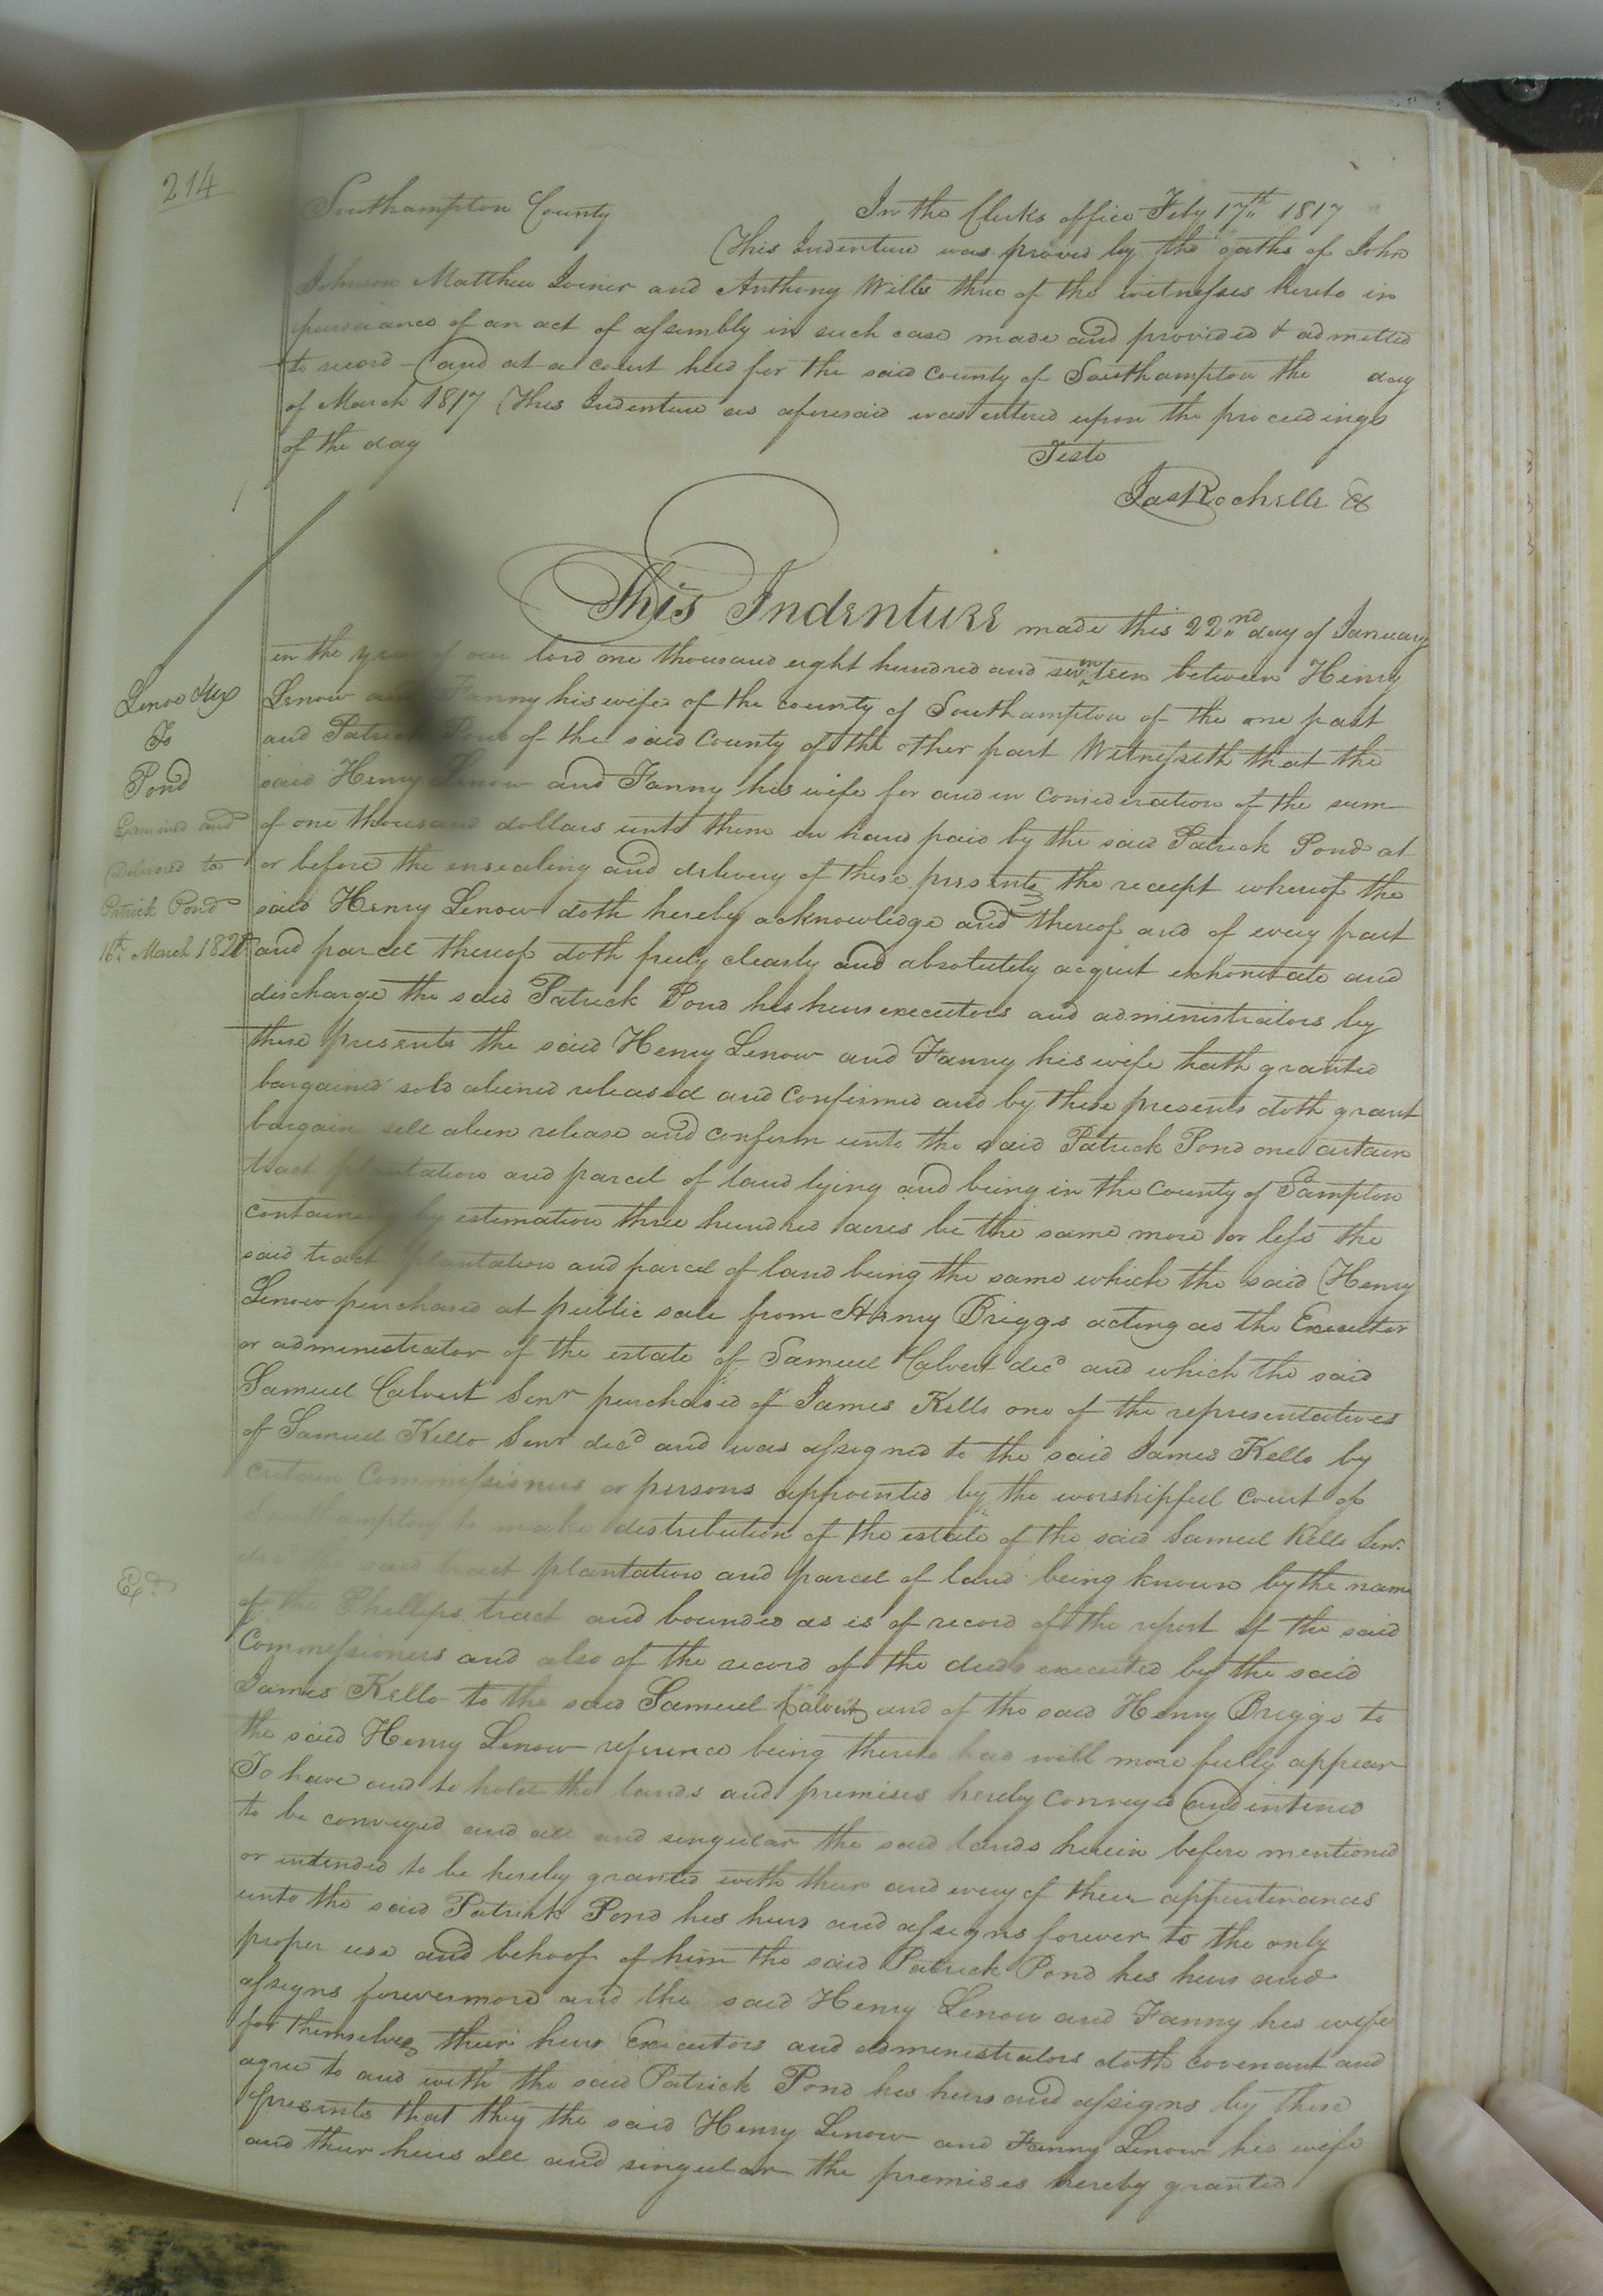 214
Southampton County In the Clerks office Feby 17th 1817
This Indenture was proved by the oaths of John
Johnson Matthew Joiner and Anthony Wills three of the witnesses hereto in
pursuance of an act of assembly in such case made and provided & admitted
to record - and at a court held for the said county of Southampton the day
of March 1817 This Indenture as aforesaid was entered upon the proceedings
of the day
Teste
Jas Rochelle
This Indenture made this 22nd day of January
in the year of our lord one thousand eight hundred and seventeen between Henry
Lenow and Fanny his wife of the county of Southampton of the one part
and Patrick Pond of the said County of the other part Witnesseth that the
said Henry Lenow and Fanny his wife for and in Consideration of the sum
of one thousand dollars unto them in hand paid by the said Patrick Pond at
or before the ensealing and delivery of these presents the receipt whereof the
said Henry Lenow doth hereby acknowledge and thereof and of every part
and parcel thereof doth freely clearly and absolutely acquit exhonerate and
discharge the said Patrick Pond his heirs executors and administrators by
these presents the said Henry Lenow and Fanny his wife hath granted
bargained sold aliened released and Confirmed and by these presents doth grant
bargain sell alien release and confirm unto the said Patrick Pond one certain
tract plantation and parcel of land lying and being in the County of Sampton
containing by estimation three hundred acres be the same more or less the
said tract plantation and parcel of land being the same which the said Henry
Lenow purchased at public sale from Henry Briggs acting as the Executor
or administrator of the estate of Samuel Calvert decd and which the said
Samuel Calvert Senr purchased of James Kello one of the representatives
of Samuel Kello Senr decd and was assigned to the said James Kello by
certain Commissioners or persons appointed by the worshipful court of
Southampton to make distribution of the estate of the said Samuel Kello Senr
said tract plantation and parcel of land being known by the name
of the Phillips tract and bounded as is of record of the report of the said
Commissioners and also of the record of the deeds executed by the said
James Kello to the said Samuel Calvert and of the said Henry Briggs to
the said Henry Lenow reference being thereto had will more fully appear
To have and to hold the lands and premises hereby conveyed and intened
to be conveyed and all and singular the said lands herein before mentioned
or intended to be hereby granted with their and every of their appurtenances
unto the said Patrick Pond his heirs and assigns forever to the only
proper use and behoof of him the said Patrick Pond his heirs and
assigns forevermore and the said Henry Lenow and Fanny his wife
for themselves their heirs Executors and administrators doth covenant and
agree to and with the said Patrick Pond his heirs and assigns by these
presents that they the said Henry Lenow and Fanny Lenow his wife
and their heirs all and singular the premises hereby granted
Lenow &ux
To
Pond
Examined and
Delivered to
Patrick Pond
16th March 182
Ed.